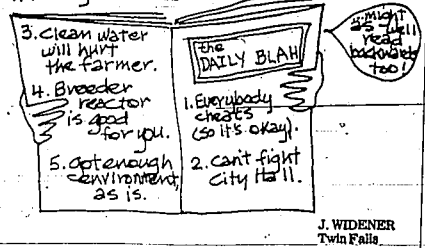 3. Clean water
will hurt
the farmer.
4. Breeder
reactor
is good
for you.
5. Got enough
environment,
as is.
the
DAILY BLAH
1. Everybody
cheats
(so it's okay).
2. Can't fight
City Hall.
might
as well
read
backwards
too!
J. WIDENER
Twin Falls